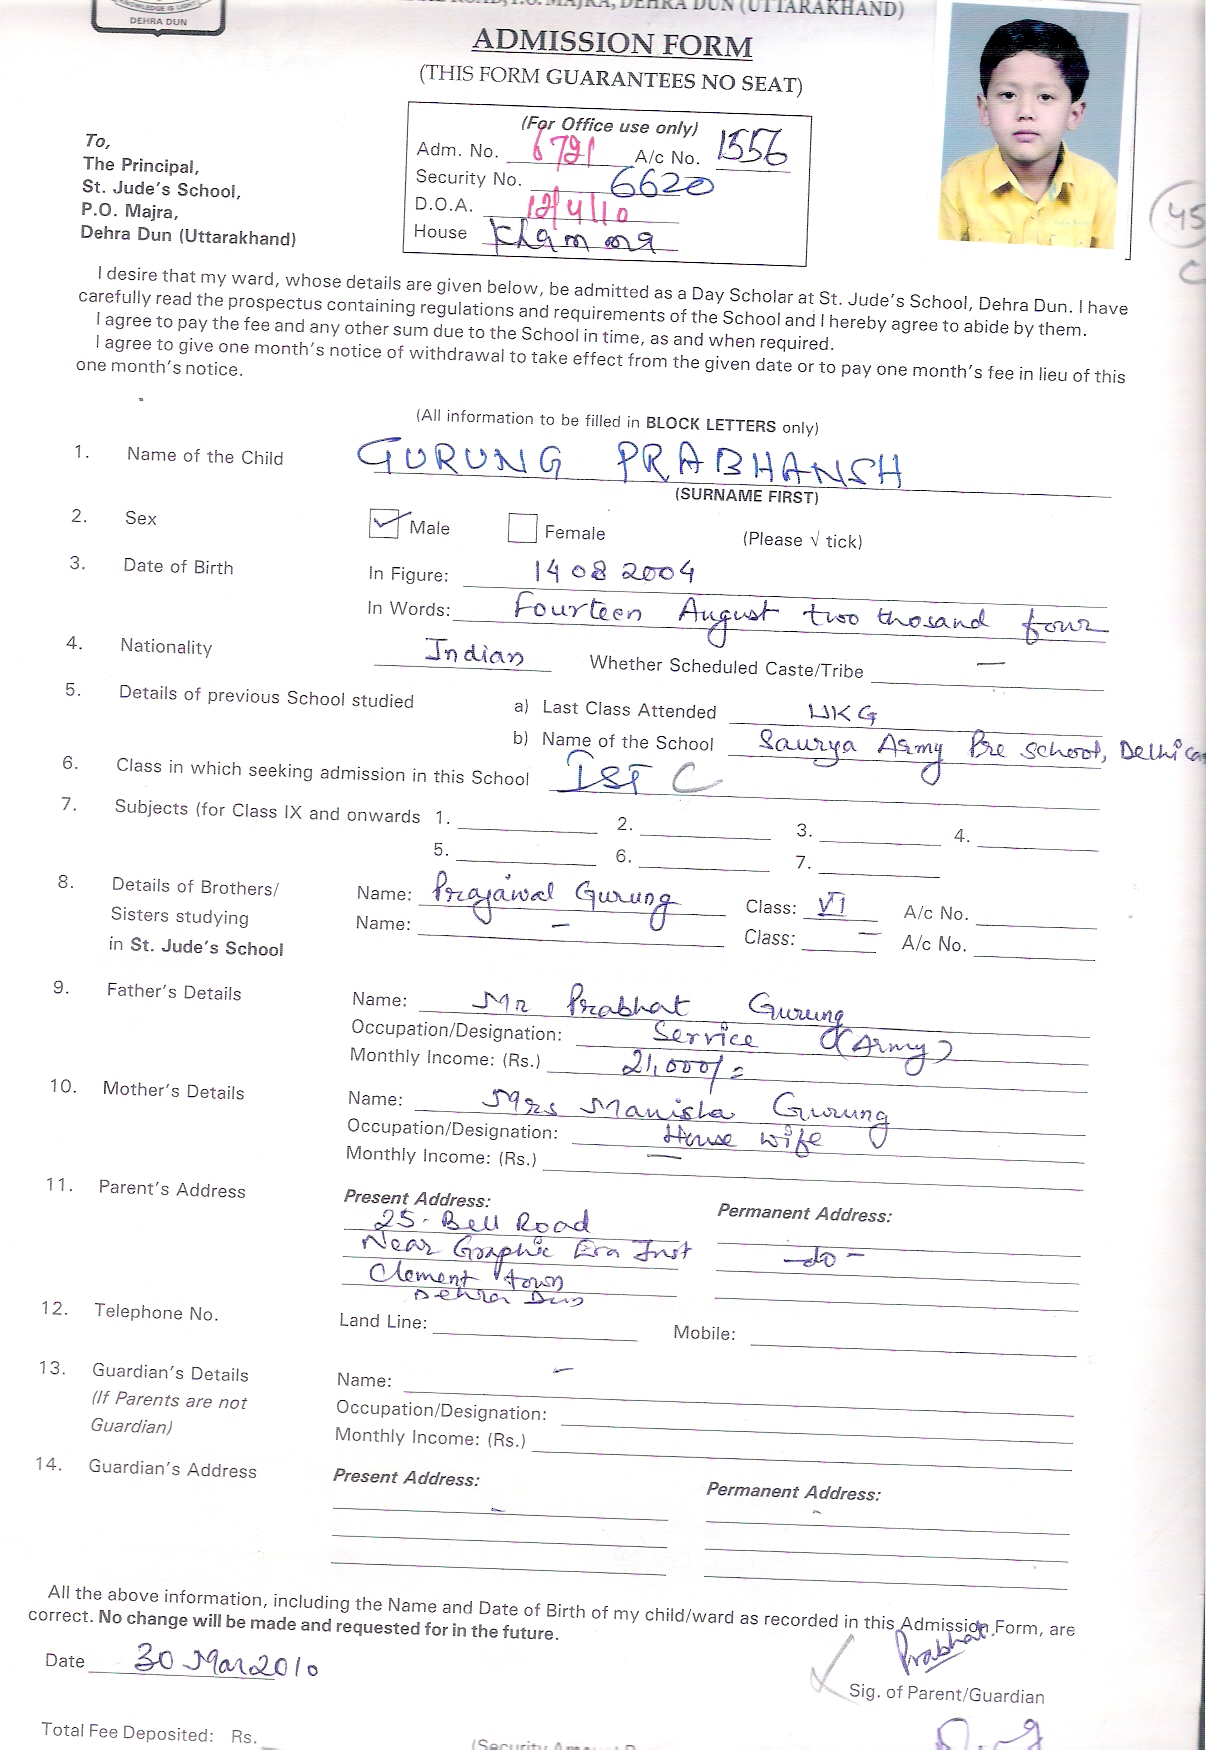 KNOWLEDGE IS LIGHT
DEHRA DUN
ROAD, P.O. MAJRA, DEHRA DUN (UTTARAKHAND)
ADMISSION FORM
(THIS FORM GUARANTEES NO SEAT)
(For Office use only)
Adm. No. 6791 A/c No. 1556
Security No. 6620
D.O.A. 12/4/10
House Khamma
To,
The Principal,
St. Jude's School,
P.O. Majra,
Dehra Dun (Uttarakhand)
45
C
I desire that my ward, whose details are given below, be admitted as a Day Scholar at St. Jude's School, Dehra Dun. I have
carefully read the prospectus containing regulations and requirements of the School and I hereby agree to abide by them.
I agree to pay the fee and any other sum due to the School in time, as and when required.
I agree to give one month's notice of withdrawal to take effect from the given date or to pay one month's fee in lieu of this
one month's notice.
(All information to be filled in BLOCK LETTERS only)
1. Name of the Child GURUNG PRABHANSH
(SURNAME FIRST)
2. Sex Male Female (Please √ tick)
3. Date of Birth In Figure: 14 08 2004
In Words: Fourteen August two thosand four
4. Nationality Indian Whether Scheduled Caste/Tribe —
5. Details of previous School studied a) Last Class Attended UKG
b) Name of the School Saurya Army Pre School, Delhi
6. Class in which seeking admission in this School IST C
7. Subjects (for Class IX and onwards 1. 2. 3. 4.
5. 6. 7.
8. Details of Brothers/ Name: Prajawal Gurung Class: VI A/c No.
Sisters studying Name: — Class: — A/c No.
in St. Jude's School
9. Father's Details Name: Mr Prabhat Gurung
Occupation/Designation: Service (Army)
Monthly Income: (Rs.) 21,000/=
10. Mother's Details Name: Mrs Manisha Gurung
Occupation/Designation: House wife
Monthly Income: (Rs.) —
11. Parent's Address Present Address: Permanent Address:
25- Bell Road
Near Graphic Era Inst —do—
Clement town
Dehra Dun
12. Telephone No. Land Line: Mobile:
13. Guardian's Details Name: —
(If Parents are not Occupation/Designation:
Guardian) Monthly Income: (Rs.)
14. Guardian's Address Present Address: Permanent Address:
- -
All the above information, including the Name and Date of Birth of my child/ward as recorded in this Admission Form, are
correct. No change will be made and requested for in the future.
Date 30 Mar 2010 Prabhat
Sig. of Parent/Guardian
Total Fee Deposited: Rs.
(Security